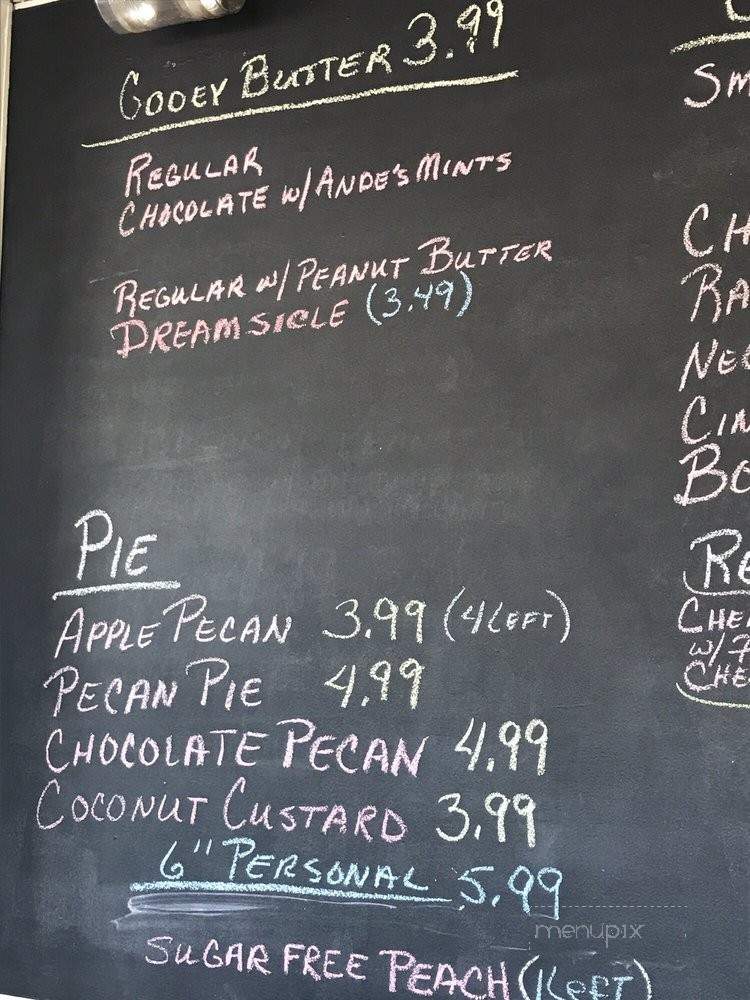 GOOEY BUTTER 3.99
REGULAR
CHOCOLATE W/ ANDE'S MINTS
REGULAR W/ PEANUT BUTTER
DREAMSICLE (3.49)
PIE
APPLE PECAN 3.99 (4 LEFT)
PECAN PIE 4.99
CHOCOLATE PECAN 4.99
COCONUT CUSTARD 3.99
6" PERSONAL 5.99
SUGAR FREE PEACH (1 LEFT)
menupix